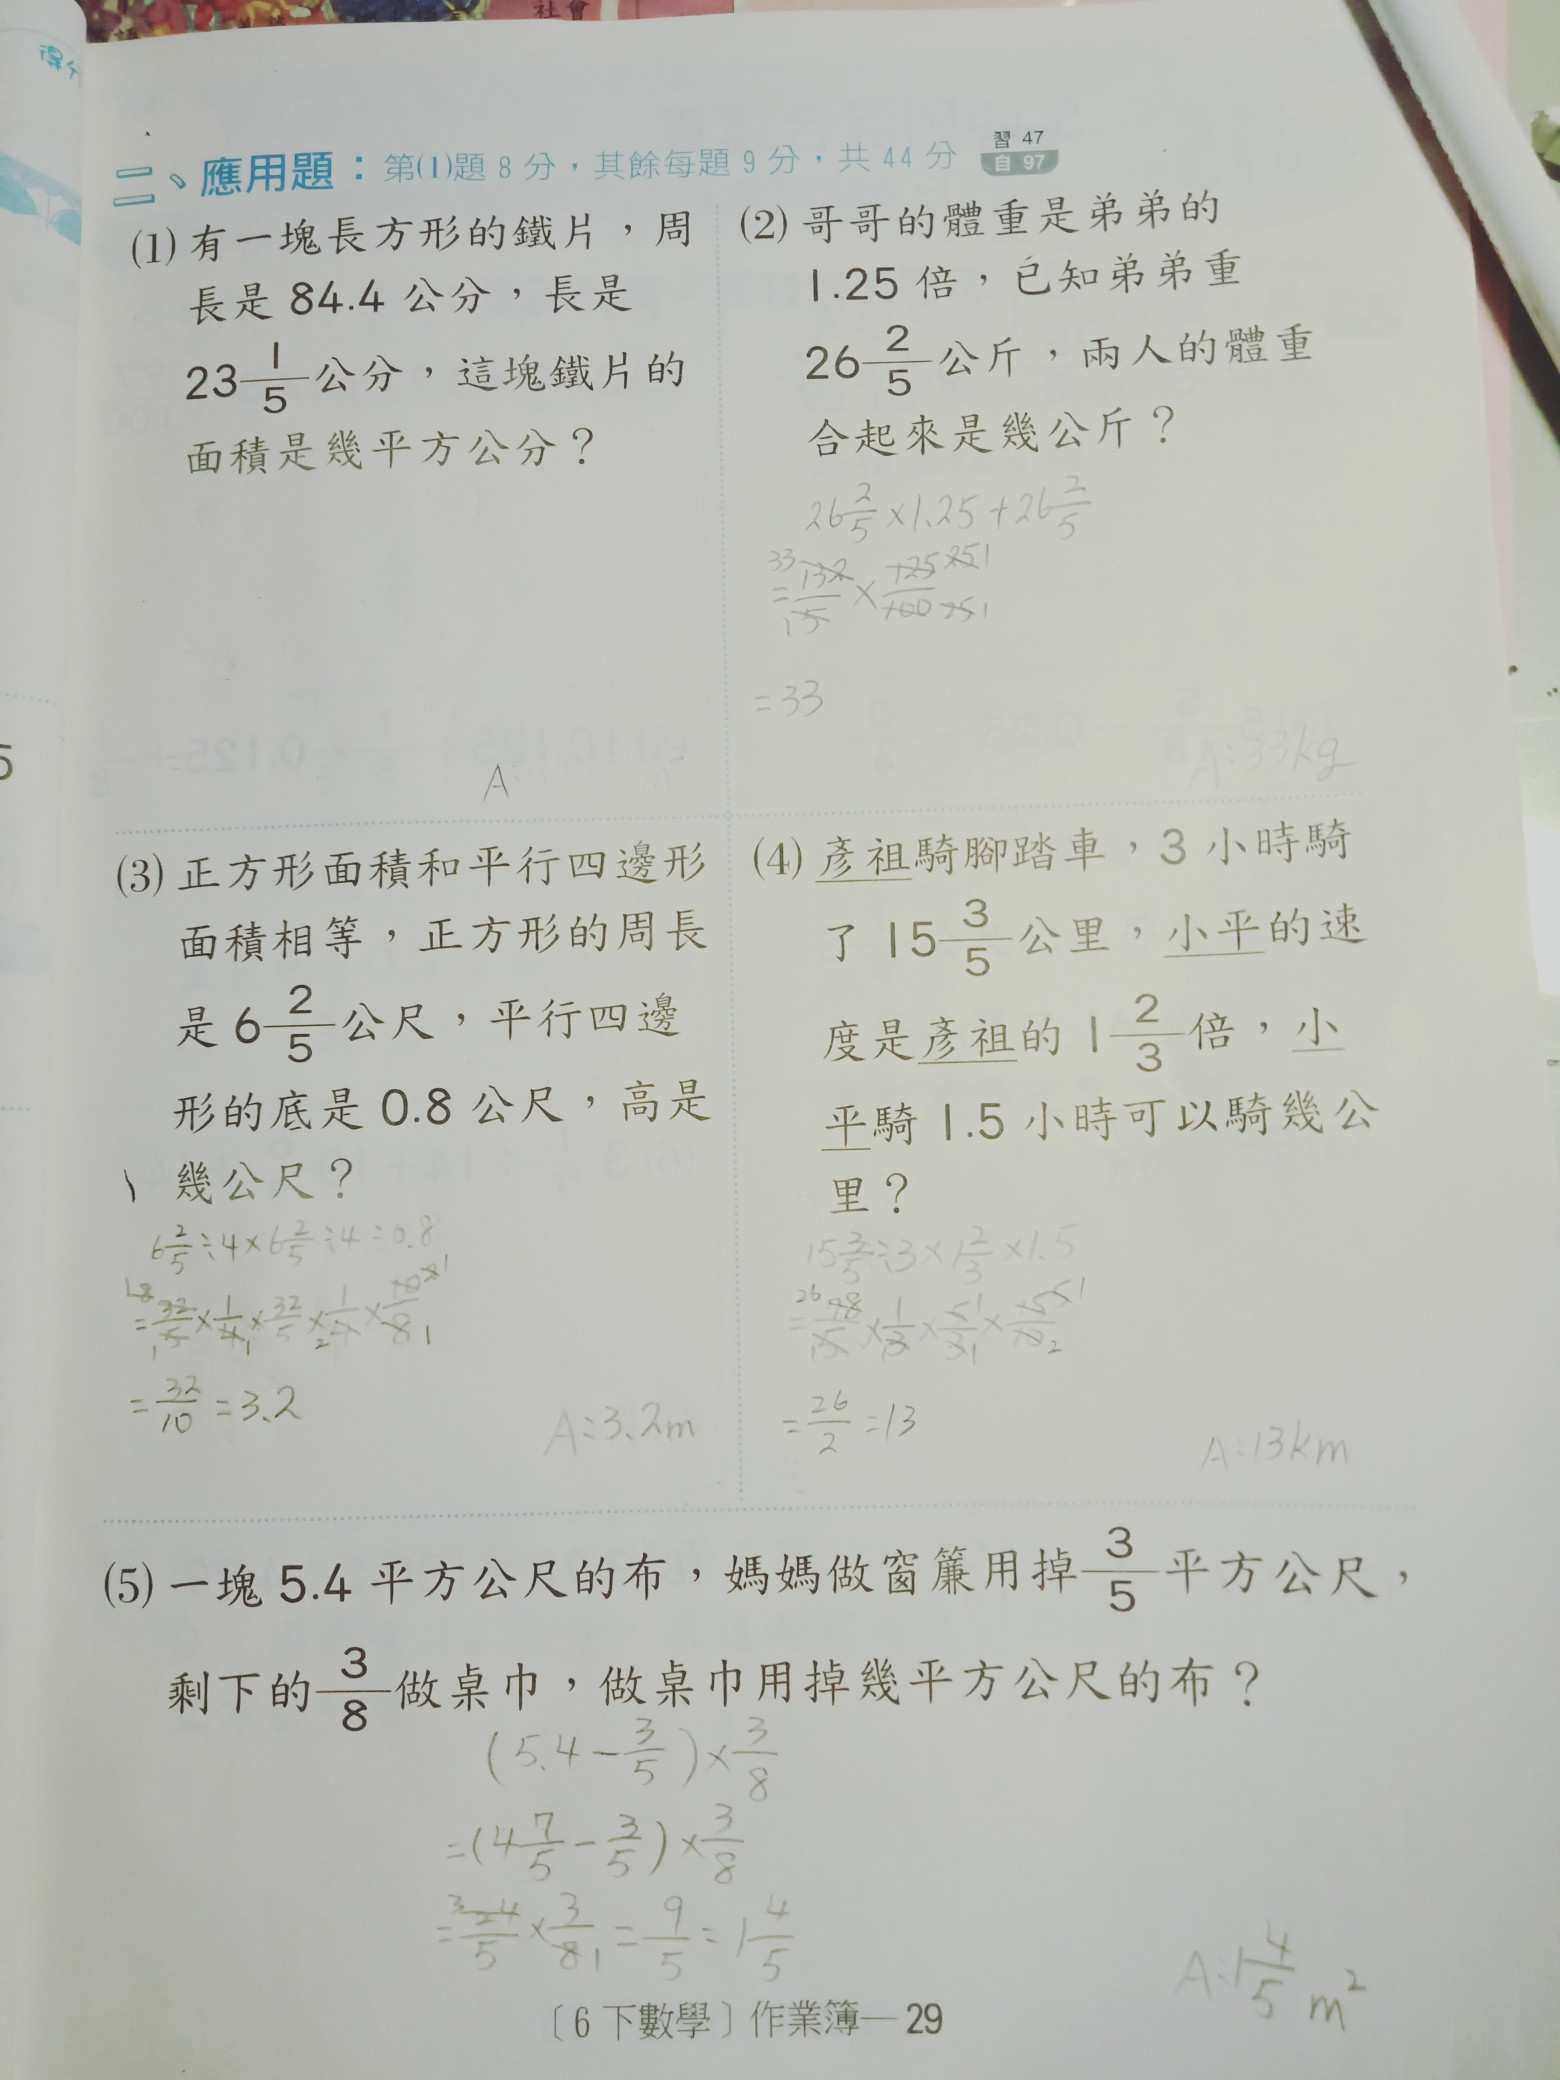 社會
得分
二、應用題：第(1)題 8 分，其餘每題 9 分，共 44 分 習 47 自 97
(1) 有一塊長方形的鐵片，周
長是 84.4 公分，長是
23 1/5 公分，這塊鐵片的
面積是幾平方公分？
A
(2) 哥哥的體重是弟弟的
1.25 倍，已知弟弟重
26 2/5 公斤，兩人的體重
合起來是幾公斤？
26 2/5 × 1.25 + 26 2/5
= 132/5 × 125/100
= 33
A:33kg
(3) 正方形面積和平行四邊形
面積相等，正方形的周長
是 6 2/5 公尺，平行四邊
形的底是 0.8 公尺，高是
幾公尺？
6 2/5 ÷ 4 × 6 2/5 ÷ 4 ÷ 0.8
= 32/5 × 1/4 × 32/5 × 1/4 × 10/8
= 32/10 = 3.2
A:3.2m
(4) 彥祖騎腳踏車，3 小時騎
了 15 3/5 公里，小平的速
度是彥祖的 1 2/3 倍，小
平騎 1.5 小時可以騎幾公
里？
15 3/5 ÷ 3 × 1 2/3 × 1.5
= 78/5 × 1/3 × 5/3 × 15/10
= 26/2 = 13
A:13km
(5) 一塊 5.4 平方公尺的布，媽媽做窗簾用掉 3/5 平方公尺，
剩下的 3/8 做桌巾，做桌巾用掉幾平方公尺的布？
(5.4 − 3/5) × 3/8
= (4 7/5 − 3/5) × 3/8
= 24/5 × 3/8 = 9/5 = 1 4/5
A:1 4/5 m²
〔6 下數學〕作業簿—29